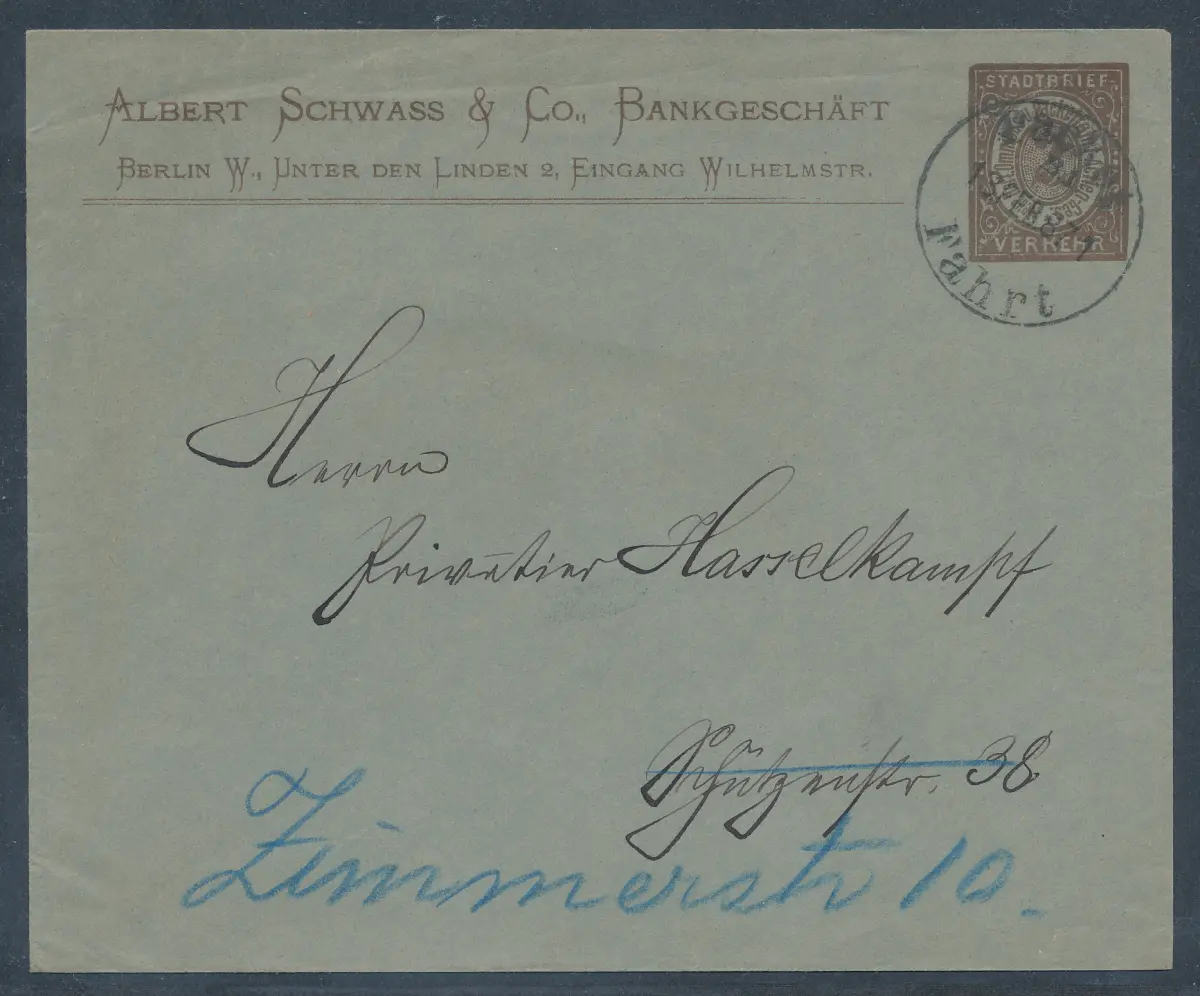 ALBERT SCHWASS & CO., BANKGESCHÄFT
BERLIN W., UNTER DEN LINDEN 2, EINGANG WILHELMSTR.
STADTBRIEF-
VERKEHR
Fahrt
Herrn
Privatier Hasselkampf
Schützenstr. 38
Zimmerstr 10.